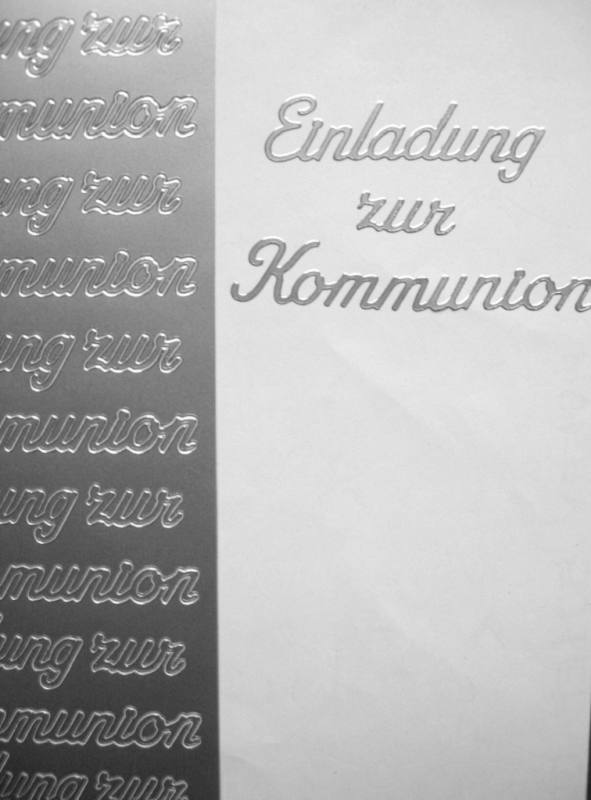 ung zur
munion
ung zur
munion
ung zur
munion
ung zur
munion
ung zur
munion
lung zur
Einladung
zur
Kommunion